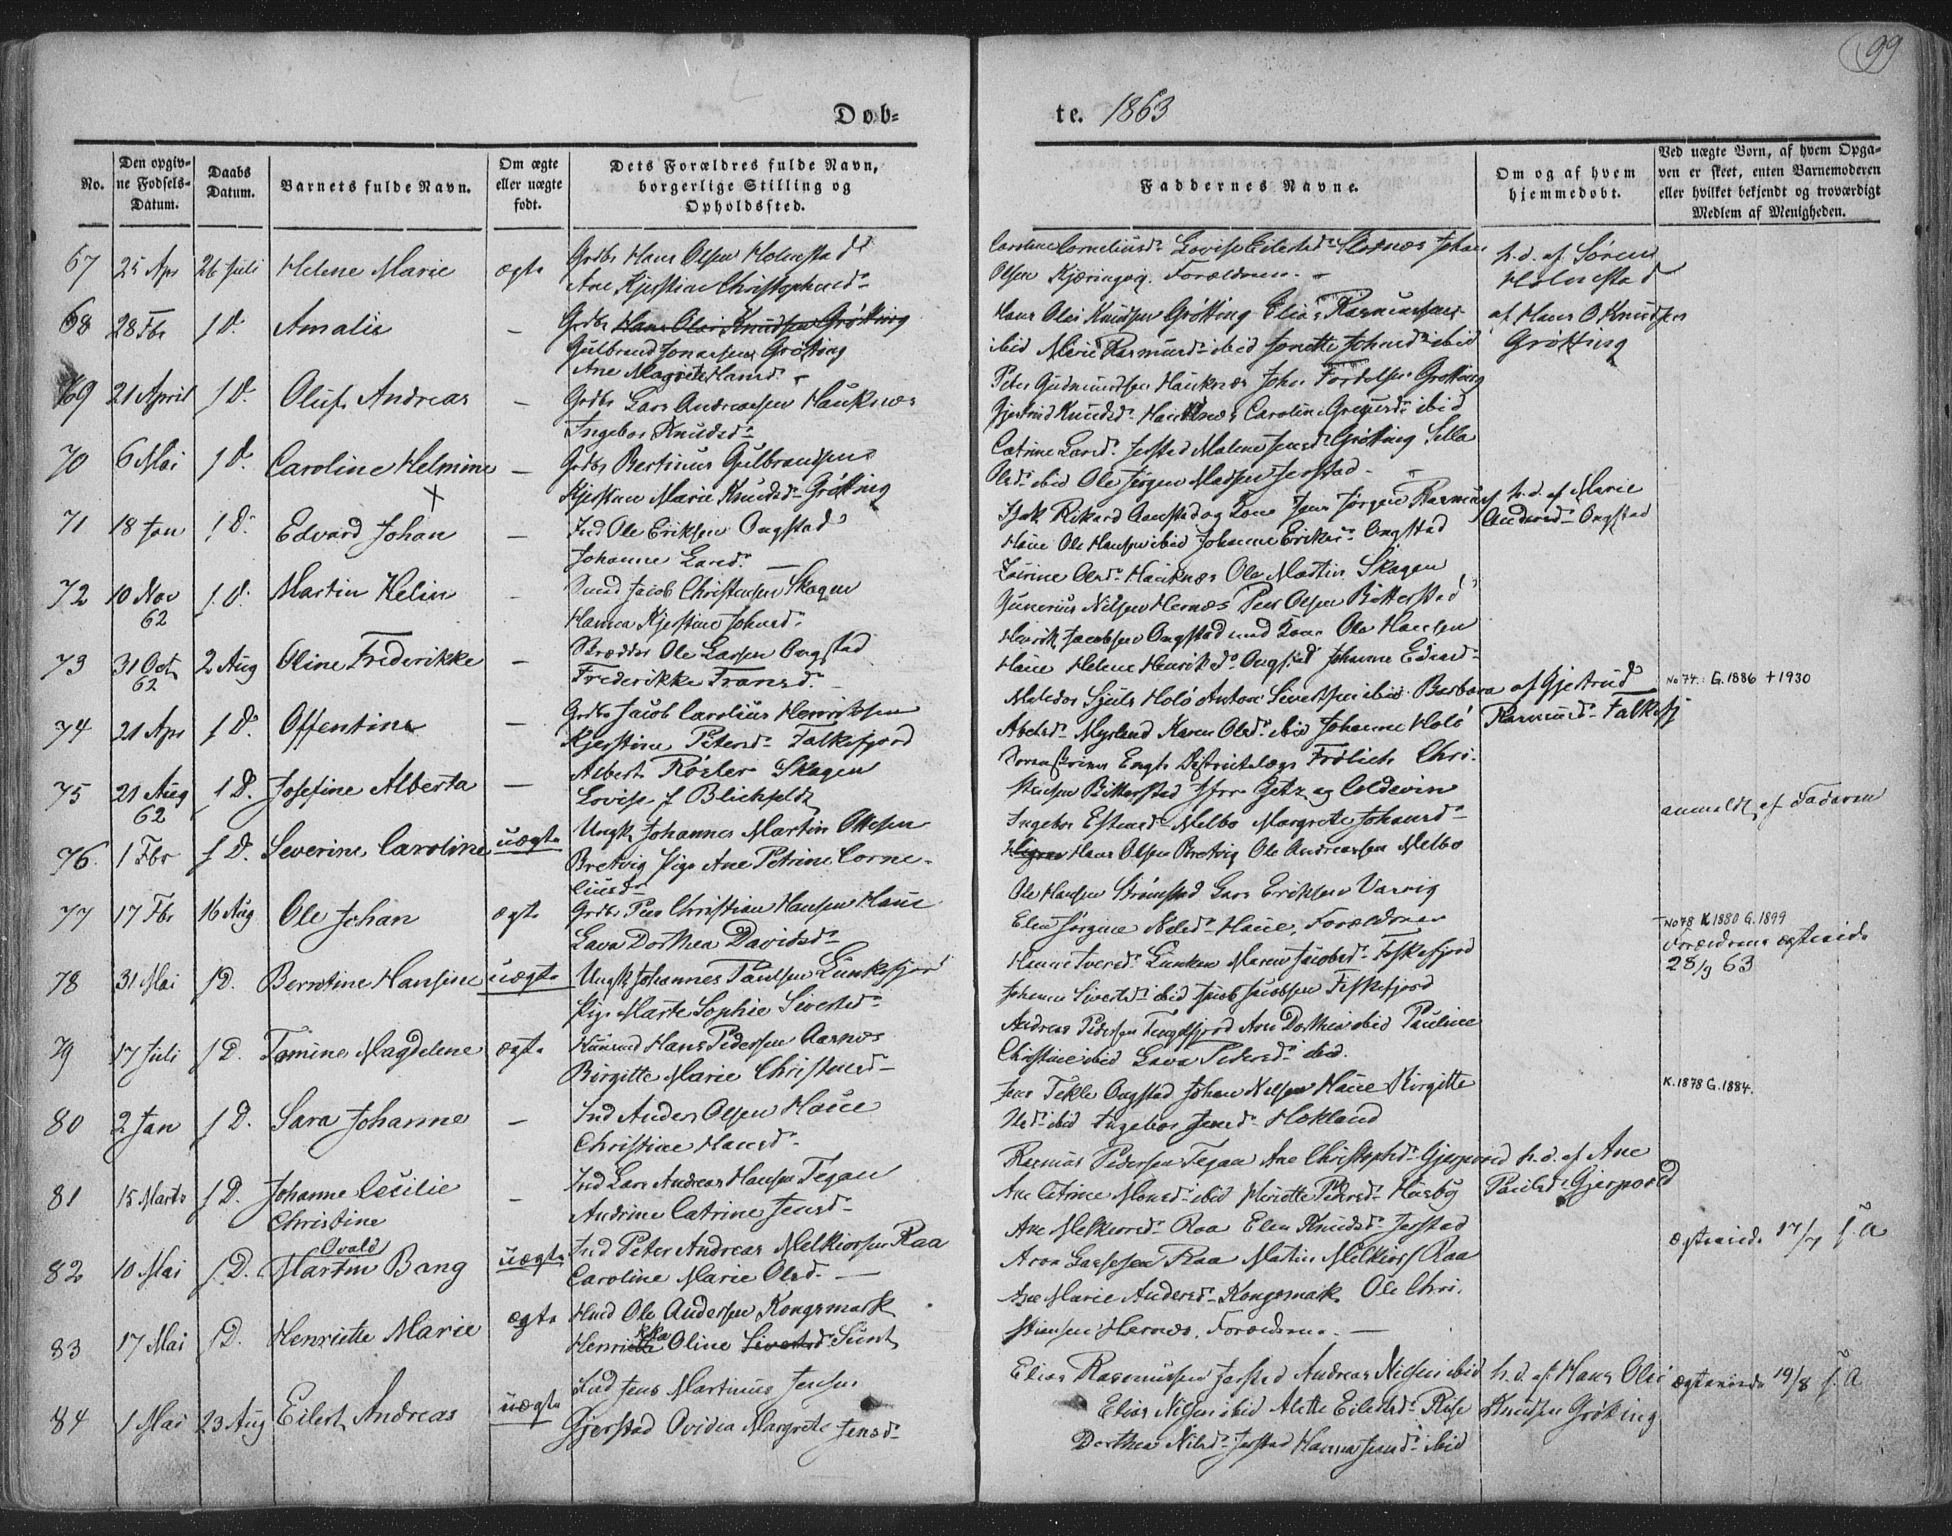 99
Døb=
te. 1863
No.
Den opgiv=
ne Fødsels=
Datum.
Daabs
Datum.
Barnets fulde Navn.
Om ægte
eller uægte
født.
Dets Forældres fulde Navn,
borgerlige Stilling og
Opholdssted.
Faddernes Navne.
Om og af hvem
hjemmedøbt.
Ved uægte Børn, af hvem Opga=
ven er skeet, enten Barnemoderen
eller hvilket bekjendt og troværdigt
Medlem af Menigheden.
67 25 Apr 26 Juli Helene Marie ægte Grdbr Hans Olsen Holmstad
Ane Kjerstine Christophersd.
Olsen Kjæringvig. Forældrene.
h. d. af Søren
Holmstad
68 28 Fbr f D. Amalie — Grdbr Hans Olai Knudsen Grøtting
Gulbrand Jonassen Grøtting
Ane Magrete Hansd.
Hans Olai Knudsen Grøtting Elias Rasmussen
ibid Marie Rasmusd. ibid Jonette Johnsd. ibid
af Hans O Knudsen
Grøtting
69 21 April f D. Oluf Andreas — Grdbr Lars Andreassen Hauknes
Ingebor Knudsd.
Peter Gudmundsen Hauknes John Grøtting
Gjertrud Knudsd. Hauknes Caroline ibid
70 6 Mai f D. Caroline Helmine — Grdbr Bertinus Gulbrandsen
Kjerstine Marie Knudsd. Grøtting
Catrine Larsd. Jerstad Malene Jensd. Grøtting
Olsd. ibid Ole Jørgen Madsen Jerstad
71 18 Jan f D. Edvard Johan — Ind Ole Eriksen Ongstad
Johanne Larsd.
Haue Ole Hansen ibid Johanne Eriksd. Ongstad
h. d. af Marie
Andersd. Ongstad
72 10 Nov
62
f. D. Martin Helin — Jacob Christensen Skagen
Hanna Kjerstine Johnsd.
Olsd. Hauknes Ole Martin Skagen
Nilsen Hernæs Peer Olsen Bitterstad
73 31 Oct
62
2 Aug Oline Frederikke — Skrædder Ole Larsen Ongstad
Frederikke Fransd.
Henrik Jacobsen Ongstad Ole Hansen
Haue Helene Henriksd. Ongstad Johanne
74 21 Apr f D. Offentine — Grdbr Jacob Carolius Henriksen
Kjerstine Petersd. Falkefjord
Myrland Karen Olsd. ibid Johanne Holø
af Gjertrud
Rasmusd. Falkefj
No 74: G. 1886 + 1930
75 21 Aug
62
f D. Josefine Alberta — Albert Røsler Skagen
Lovise f Blichfeldt
Districtslæge Frølich Chri.
stensen Bitterstad Getz og Coldevin
76. 1 Fbr f D. Severine Caroline uægte Ungk. Johannes Martin Ottesen
Bretvig Pige Ane Petrine Corne-
liusd.
Ingebor Melbo Margrete Johansd.
Hans Olsen Bretvig Ole Andreassen Melbo
anmeldt af Faderen
77 17 Fbr 16 Aug Ole Johan ægte Grdbr Peer Christian Hansen Haue
Lava Dorthea Davidsd.
Ole Hansen Strømstad Lars Eriksen Varvig
Elen Jørgine Nelsd. Haue, Forældrene
78 31 Mai f D. Berntine Hansine uægte Ungk Johannes Paulsen Lunkefjord
Pige Marte Sophie Sivertsd.
Hanne Iversd. Lunken Maren Jacobsd. Fiskefjord
Johanna Sivertsd. ibid Jacob Jacobsen Fiskefjord
No 78 K. 1880 G. 1899
Forældrene ægteviede
28/9 63
79 17 Juli f D. Tomine Magdelene ægte Huusmd Hans Pedersen Aarnæs
Birgitte Marie Christensd.
Andreas Pedersen Tengelfjord Ane Dorthea ibid Pauline
Christine ibid Lava Pedersd. ibid.
80 2 Jan f D. Sara Johanne — Ind Anders Olsen Haue
Christine Hansd.
Jens Tekle Ongstad Johan Nilsen Haue Birgitte
Nilsd. ibid Ingebor Jensd. Hokland
K. 1878 G. 1884.
81 15 Marts f D. Johanne Cecilie
Christine
— Ind Lars Andreas Hansen Tegan
Andrine Catrine Jensd.
Rasmus Pedersen Tegan Ane Christophd. Gjerpvold
Ane Catrine Monsd. ibid Mariette Pedersd. Husby
h. d. af Ane
Paulsd. Gjerpvold
82 10 Mai f D. Martin Ovald Bang uægte Ind Peter Andreas Melkiorsen Raa
Caroline Marie Olsd. —
Ane Melkiorsd. Raa Elen Knudsd. Jerstad
Aron Larsesen Raa Matin Melkiors. Raa
ægteviede 17/7 f. A
83 17 Mai f D. Henriette Marie ægte Husmd Ole Andersen Kongsmark
Oline Sivertsd. Sund
Ane Marie Andersd. Kongsmark Ole Chri.
stiansen Hernæs. Forældrene. —
84 1 Mai 23 Aug Eilert Andreas uægte Ind Jens Martinus Jensen
Gjerstad Ovidia Margrete Jensd.
Elias Rasmussen Jerstad Andreas Nilsen ibid
Elias Nilsen ibid Alette Eilertsd. Rise
Dorthea Nilsd. Jerstad Hanna Jensd. ibid
h. d. af Hans Olai
Knudsen Grøtting
ægteviede 19/8 f. A